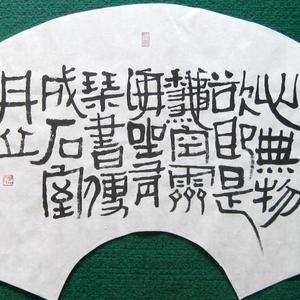 心無物
欲即是
龝空霽
海坐有
琴書便
成石室
丹丘